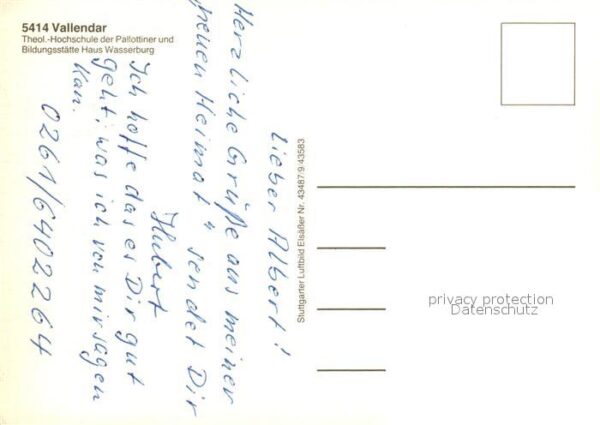 5414 Vallendar
Theol.-Hochschule der Pallottiner und
Bildungsstätte Haus Wasserburg
Lieber Albert!
Herzliche Grüße aus meiner
neuen Heimat" sendet Dir
Hubert
Ich hoffe das es Dir gut
geht, was ich von mir sagen
kan.
0261/6402264
Stuttgarter Luftbild Elsäßer Nr. 43487/9 43583
privacy protection
Datenschutz